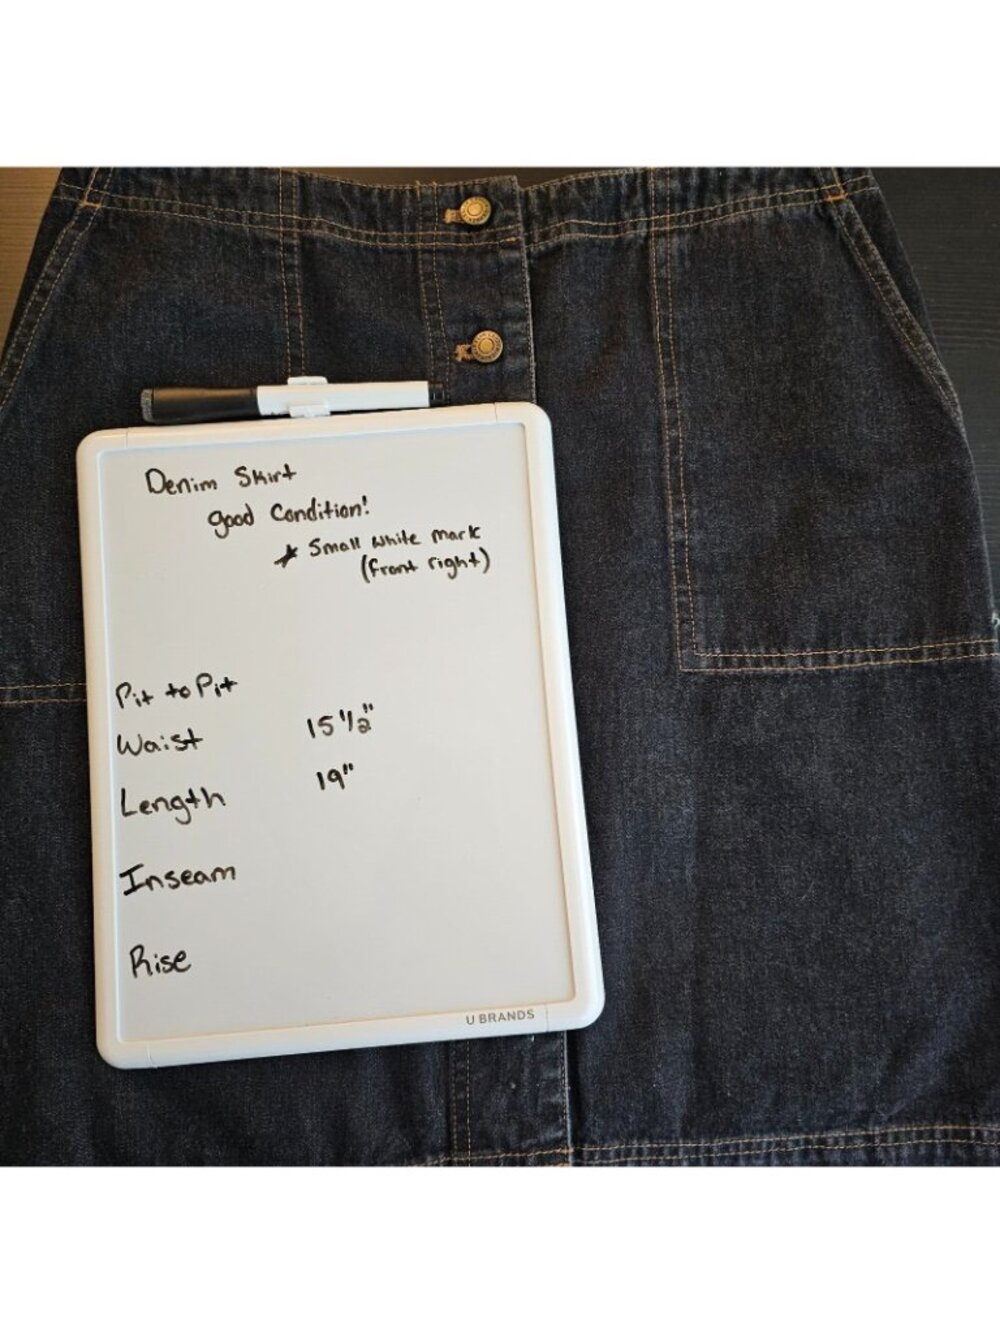 Denim Skirt
good Condition!
* Small white mark
(front right)
Pit to Pit
Waist 15 1/2"
Length 19"
Inseam
Rise
U BRANDS